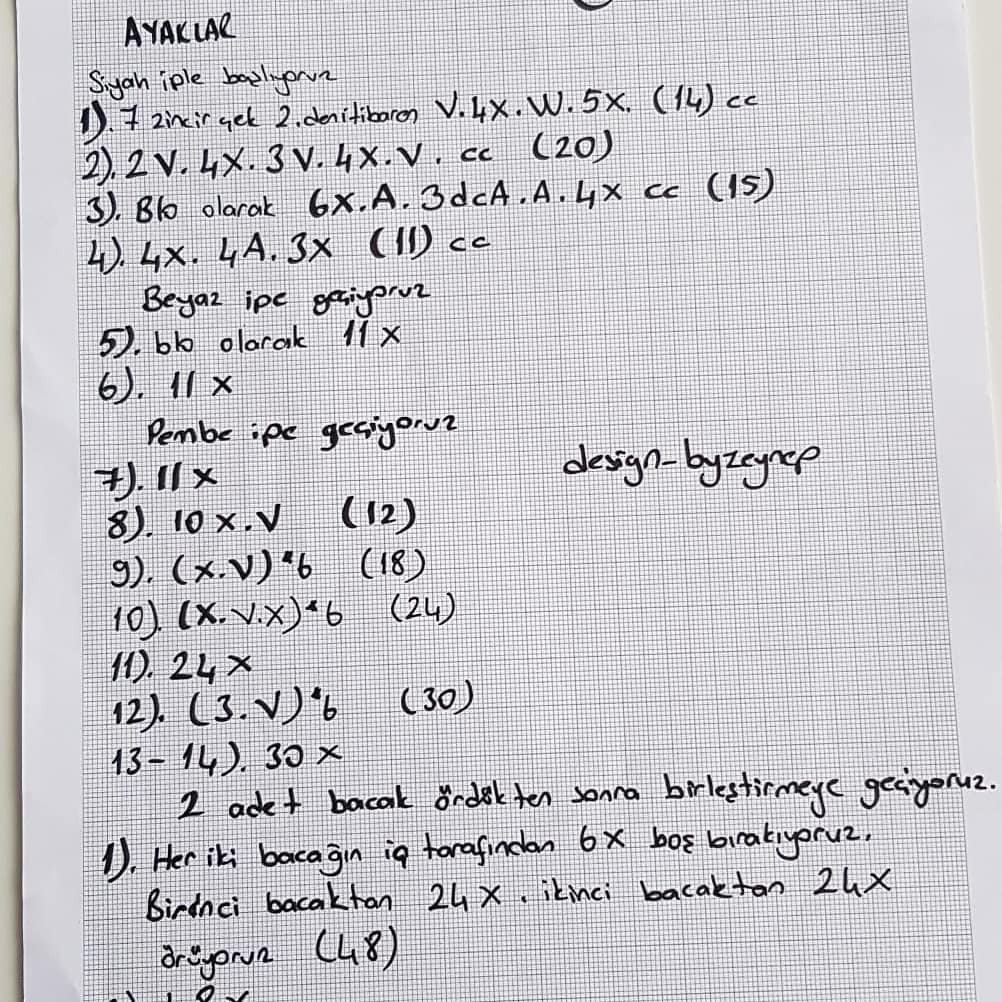 AYAKLAR
Siyah iple başlıyoruz
1). 7 zincir çek 2.den itibaren V.4X.W.5X. (14) cc
2). 2V.4X.3V.4X.V. cc (20)
3). Blo olarak 6X.A.3dcA.A.4X cc (15)
4). 4X.4A.3X (11) cc
Beyaz ipe geçiyoruz
5). blo olarak 11 X
6). 11 X
Pembe ipe geçiyoruz
7). 11 X
design-byzeynep
8). 10 X.V (12)
9). (X.V)*6 (18)
10). (X.V.X)*6 (24)
11). 24 X
12). (3.V)*6 (30)
13-14). 30 X
2 adet bacak ördükten sonra birleştirmeye geçiyoruz.
1). Her iki bacağın iç tarafından 6X boş bırakıyoruz.
Birinci bacaktan 24 X. ikinci bacaktan 24X
örüyoruz (48)